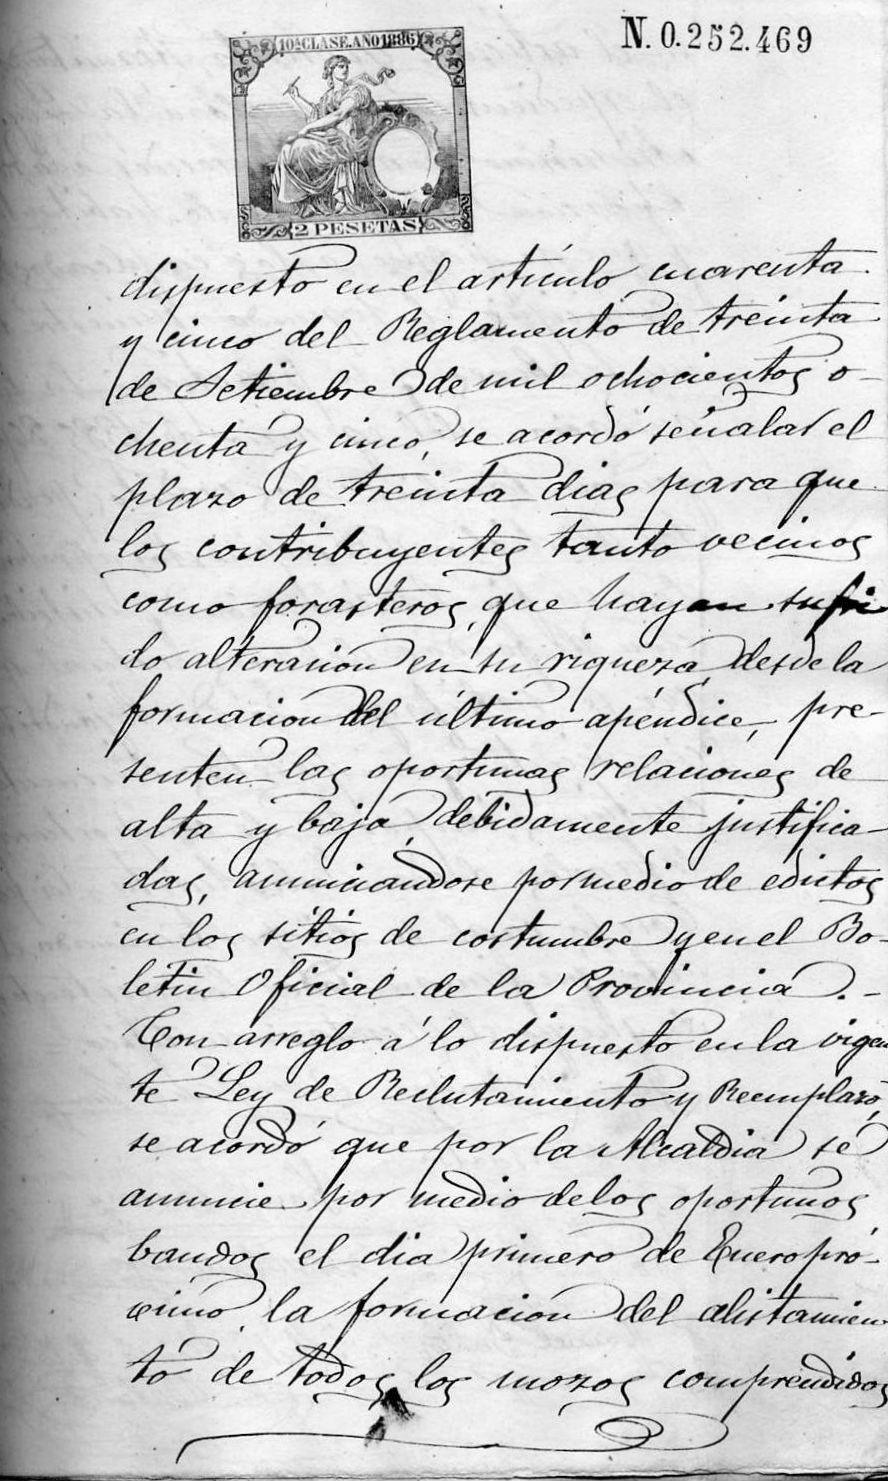 N. 0.252.469
10ª CLASE. AÑO 1886
2 PESETAS
dispuesto en el artículo cuarenta
y cinco del Reglamento de treinta
de Setiembre de mil ochocientos o-
chenta y cinco, se acordó señalar el
plazo de treinta dias para que
los contribuyentes tanto vecinos
como forasteros, que hayan sufri
do alteracion en su riqueza desde la
formacion del último apéndice, pre-
senten las oportunas relaciones de
alta y baja debidamente justifica-
das, anunciandose por medio de edictos
en los sitios de costumbre y en el Bo-
letin Oficial de la Provincia.-
Con arreglo á lo dispuesto en la vigen
te Ley de Reclutamiento y Reemplazo,
se acordó que por la Alcaldia se
anuncie por medio de los oportunos
bandos el dia primero de Enero pró-
ximo la formacion del alistamien
to de todos los mozos comprendidos